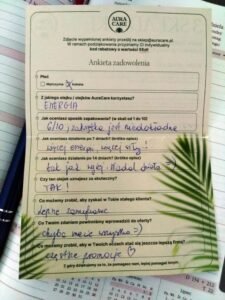 AURA
CARE
Zdjęcie wypełnionej ankiety prześlij na sklep@auracare.pl.
W ramach podziękowania przyznamy Ci indywidualny
kod rabatowy o wartości
Ankieta zadowolenia
Płeć
Mężczyzna Kobieta
Z jakiego olejku i olejków AuraCare korzystasz?
ENERGIA
Jak oceniasz sposób zapakowania? (w skali od 1 do 10)
6/10, zakrętka jest niedokładna
Jak oceniasz po działaniu 7 dniach? (krótki opis)
więcej energii, więcej siły!
Jak oceniasz po działaniu 14 dniach? (krótki opis)
tak jak wyżej. Nadal działa :)
Czy ten olejek uznajesz za skuteczny?
TAK!
Co możemy zrobić, aby zyskać w Twoich oczach
lepsze
Co Twoim zdaniem powinniśmy wprowadzić do oferty?
chyba macie wszystko :)
Co możemy zrobić, aby w Twoich oczach stać się jeszcze lepszą firmą?
częstsze promocje
Z góry dziękujemy za to, że pomagasz nam się rozwijać.